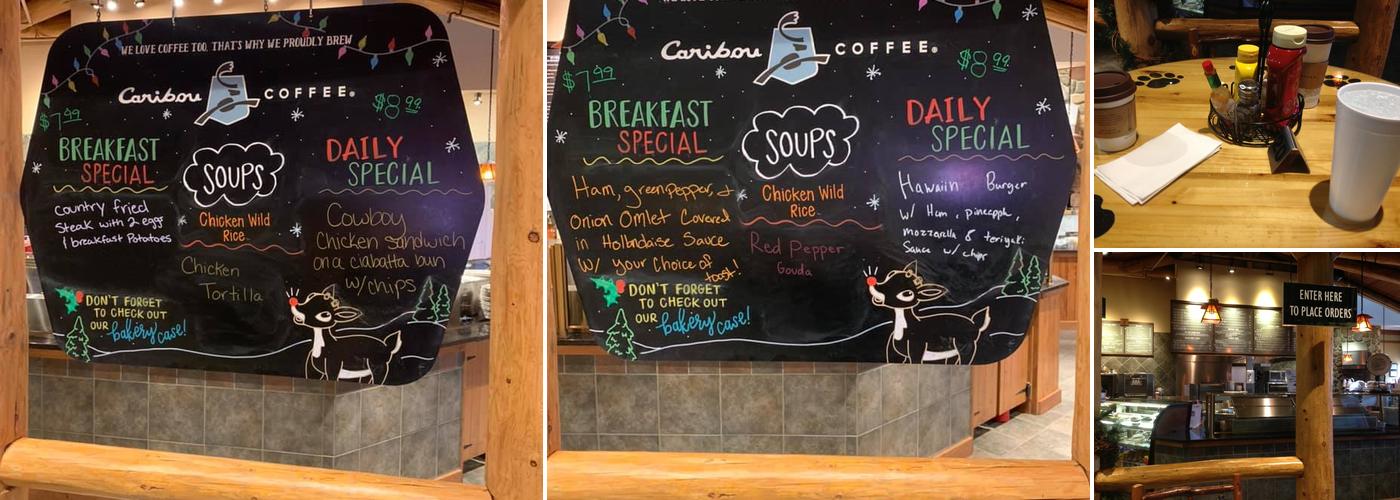 WE LOVE COFFEE TOO, THAT'S WHY WE PROUDLY BREW
Caribou COFFEE®
$7.99
$8.99
BREAKFAST
SPECIAL
country fried
steak with 2 eggs
1 breakfast Potatoes
SOUPS
Chicken Wild
Rice
Chicken
Tortilla
DAILY
SPECIAL
Cowboy
Chicken sandwich
on a ciabatta bun
w/chips
DON'T FORGET
TO CHECK OUT
OUR bakery case!
Caribou COFFEE®
$7.99
$8.99
BREAKFAST
SPECIAL
Ham, green pepper, +
Onion Omlet Covered
in Hollandaise Sauce
w/ your Choice of
toast!
SOUPS
Chicken Wild
Rice
Red Pepper
Gouda
DAILY
SPECIAL
Hawaiin Burger
w/ Ham, pineapple,
mozzarella & teriyaki
Sauce w/ chips
DON'T FORGET
TO CHECK OUT
OUR bakery case!
ENTER HERE
TO PLACE ORDERS